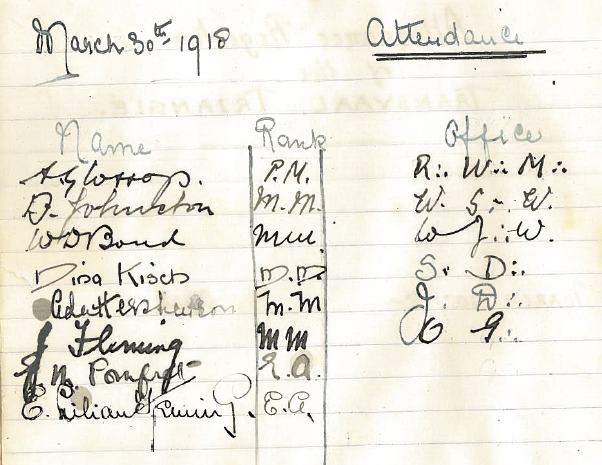 March 30th 1918 Attendance
Name Rank Office
A. Glossop. P.M. R∴ W∴ M∴
D. Johnston M.M. W. S∴ W.
W D Bond MM. W J∴ W.
Disa Kisch M.M. S. D∴
Ada M.M J D∴
J Fleming MM O G∴
N. Pomfret E.A.
E. Lilian E.A.